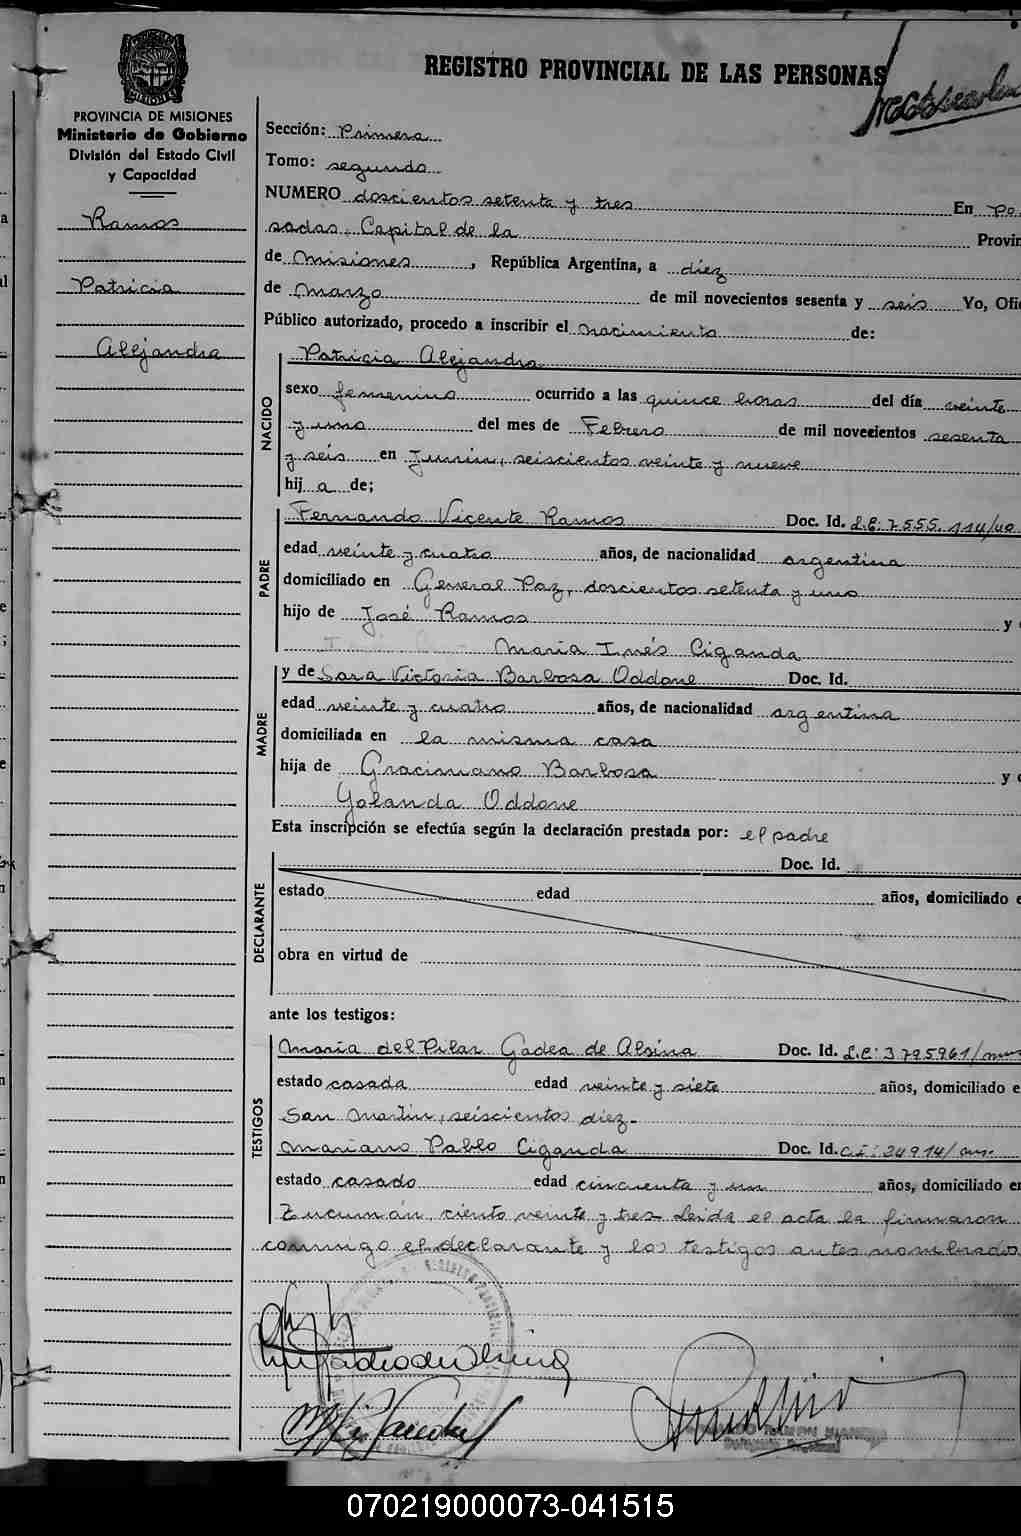 PROVINCIA DE MISIONES
Ministerio de Gobierno
División del Estado Civil
y Capacidad
Ramos
Patricia
Alejandra
REGISTRO PROVINCIAL DE LAS PERSONAS
Sección: Primera
Tomo: segundo
NUMERO doscientos setenta y tres En Po
sadas, Capital de la Provin
de Misiones, República Argentina, a diez
de Marzo de mil novecientos sesenta y seis Yo, Ofi
Público autorizado, procedo a inscribir el nacimiento de:
NACIDO
Patricia Alejandra
sexo femenino ocurrido a las quince horas del día veinte
y uno del mes de Febrero de mil novecientos sesenta
y seis en Junin, seiscientos veinte y nueve
hij a de;
PADRE
Fernando Vicente Ramos Doc. Id. L.E: 7.555.114/
edad veinte y cuatro años, de nacionalidad argentina
domiciliado en General Paz, doscientos setenta y uno
hijo de José Ramos y
María Inés Ciganda
MADRE
y de Sara Victoria Barbosa Oddone Doc. Id.
edad veinte y cuatro años, de nacionalidad argentina
domiciliada en la misma casa
hija de Graciniano Barbosa y
Yolanda Oddone
Esta inscripción se efectúa según la declaración prestada por: el padre
DECLARANTE
Doc. Id.
estado edad años, domiciliado e
obra en virtud de
ante los testigos:
TESTIGOS
María del Pilar Gadea de Alsina Doc. Id. L.C: 3795961/
estado casada edad veinte y siete años, domiciliado e
San Martín, seiscientos diez-
Mariano Pablo Ciganda Doc. Id. C.I: 34914/
estado casado edad cincuenta y un años, domiciliado en
Tucumán, ciento veinte y tres Leida el acta la firmaron
conmigo el declarante y los testigos antes nombrados
070219000073-041515